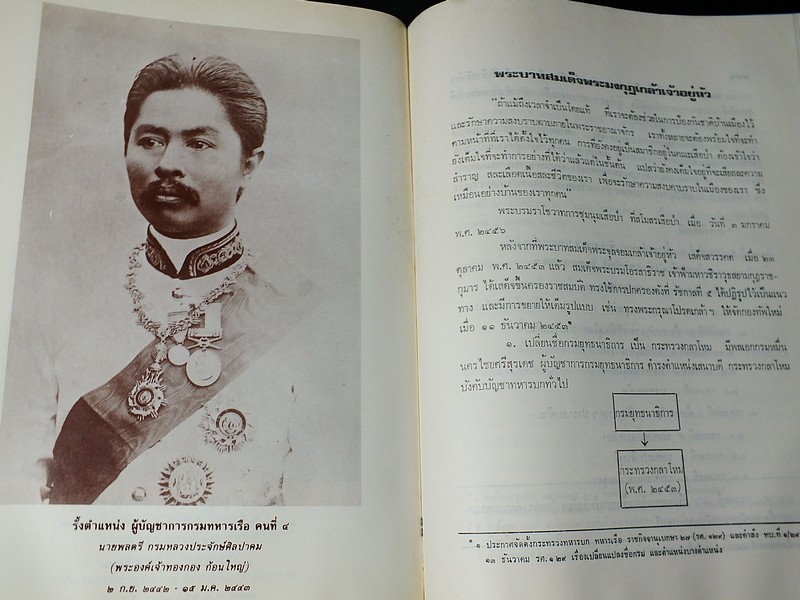 รั้งตำแหน่ง ผู้บัญชาการกรมทหารเรือ คนที่ ๔
นายพลตรี กรมหลวงประจักษ์ศิลปาคม
(พระองค์เจ้าทองกอง ก้อนใหญ่)
๒ ก.ย. ๒๔๔๒ - ๑๕ ม.ค. ๒๔๔๓
พระบาทสมเด็จพระมงกุฎเกล้าเจ้าอยู่หัว
"ถ้าแม้ถึงเวลาจำเป็นโดยแท้ ที่เราจะต้องช่วยในการป้องกันชาติบ้านเมืองไว้
และรักษาความสงบราบคาบภายในพระราชอาณาจักร เราทั้งหลายจะต้องพร้อมใจที่จะทำ
ตามหน้าที่ที่เราได้ตั้งใจไว้ทุกคน การที่ยังคงอยู่เป็นสมาชิกอยู่ในคณะเสือป่า ต้องเข้าใจว่า
ยังเต็มใจที่จะทำการอย่างที่ได้ว่าแล้วแต่ในชั้นต้น แปลว่ายังคงเต็มใจอยู่ที่จะเสียสละความ
สำราญ สละเลือดเนื้อสละชีวิตของเรา เพื่อจะรักษาความสงบราบคาบในเมืองของเรา ซึ่ง
เหมือนอย่างบ้านของเราทุกคน"
พระบรมราโชวาทการชุมนุมเสือป่า ที่สโมสรเสือป่า เมื่อ วันที่ ๓ มกราคม
พ.ศ. ๒๔๕๖
หลังจากที่พระบาทสมเด็จพระจุลจอมเกล้าเจ้าอยู่หัว เสด็จสวรรคต เมื่อ ๒๓
ตุลาคม พ.ศ. ๒๔๕๓ แล้ว สมเด็จพระบรมโอรสาธิราช เจ้าฟ้ามหาวชิราวุธสยามกุฎราช-
กุมาร ได้เสด็จขึ้นครองราชสมบัติ ทรงใช้การปกครองดังที่ รัชกาลที่ ๕ ได้ปฏิรูปไว้เป็นแนว
ทาง และมีการขยายให้เต็มรูปแบบ เช่น ทรงพระกรุณาโปรดเกล้าฯ ให้จัดกองทัพใหม่
เมื่อ ๑๑ ธันวาคม ๒๔๕๓*
๑. เปลี่ยนชื่อกรมยุทธนาธิการ เป็น กระทรวงกลาโหม มีพลเอกกรมหมื่น
นครไชยศรีสุรเดช ผู้บัญชาการกรมยุทธนาธิการ ดำรงตำแหน่งเสนาบดี กระทรวงกลาโหม
บังคับบัญชาทหารบกทั่วไป
กรมยุทธนาธิการ
กระทรวงกลาโหม
(พ.ศ. ๒๔๕๓)
* ๑ ประกาศจัดตั้งกระทรวงทหารบก ทหารเรือ ราชกิจจานุเบกษา ๒๗ (รศ. ๑๒๙) และคำสั่ง ทบ.ที่ ๑/๒๙
๑๓ ธันวาคม รศ. ๑๒๙ เรื่องเปลี่ยนแปลงชื่อกรม และตำแหน่งบางตำแหน่ง